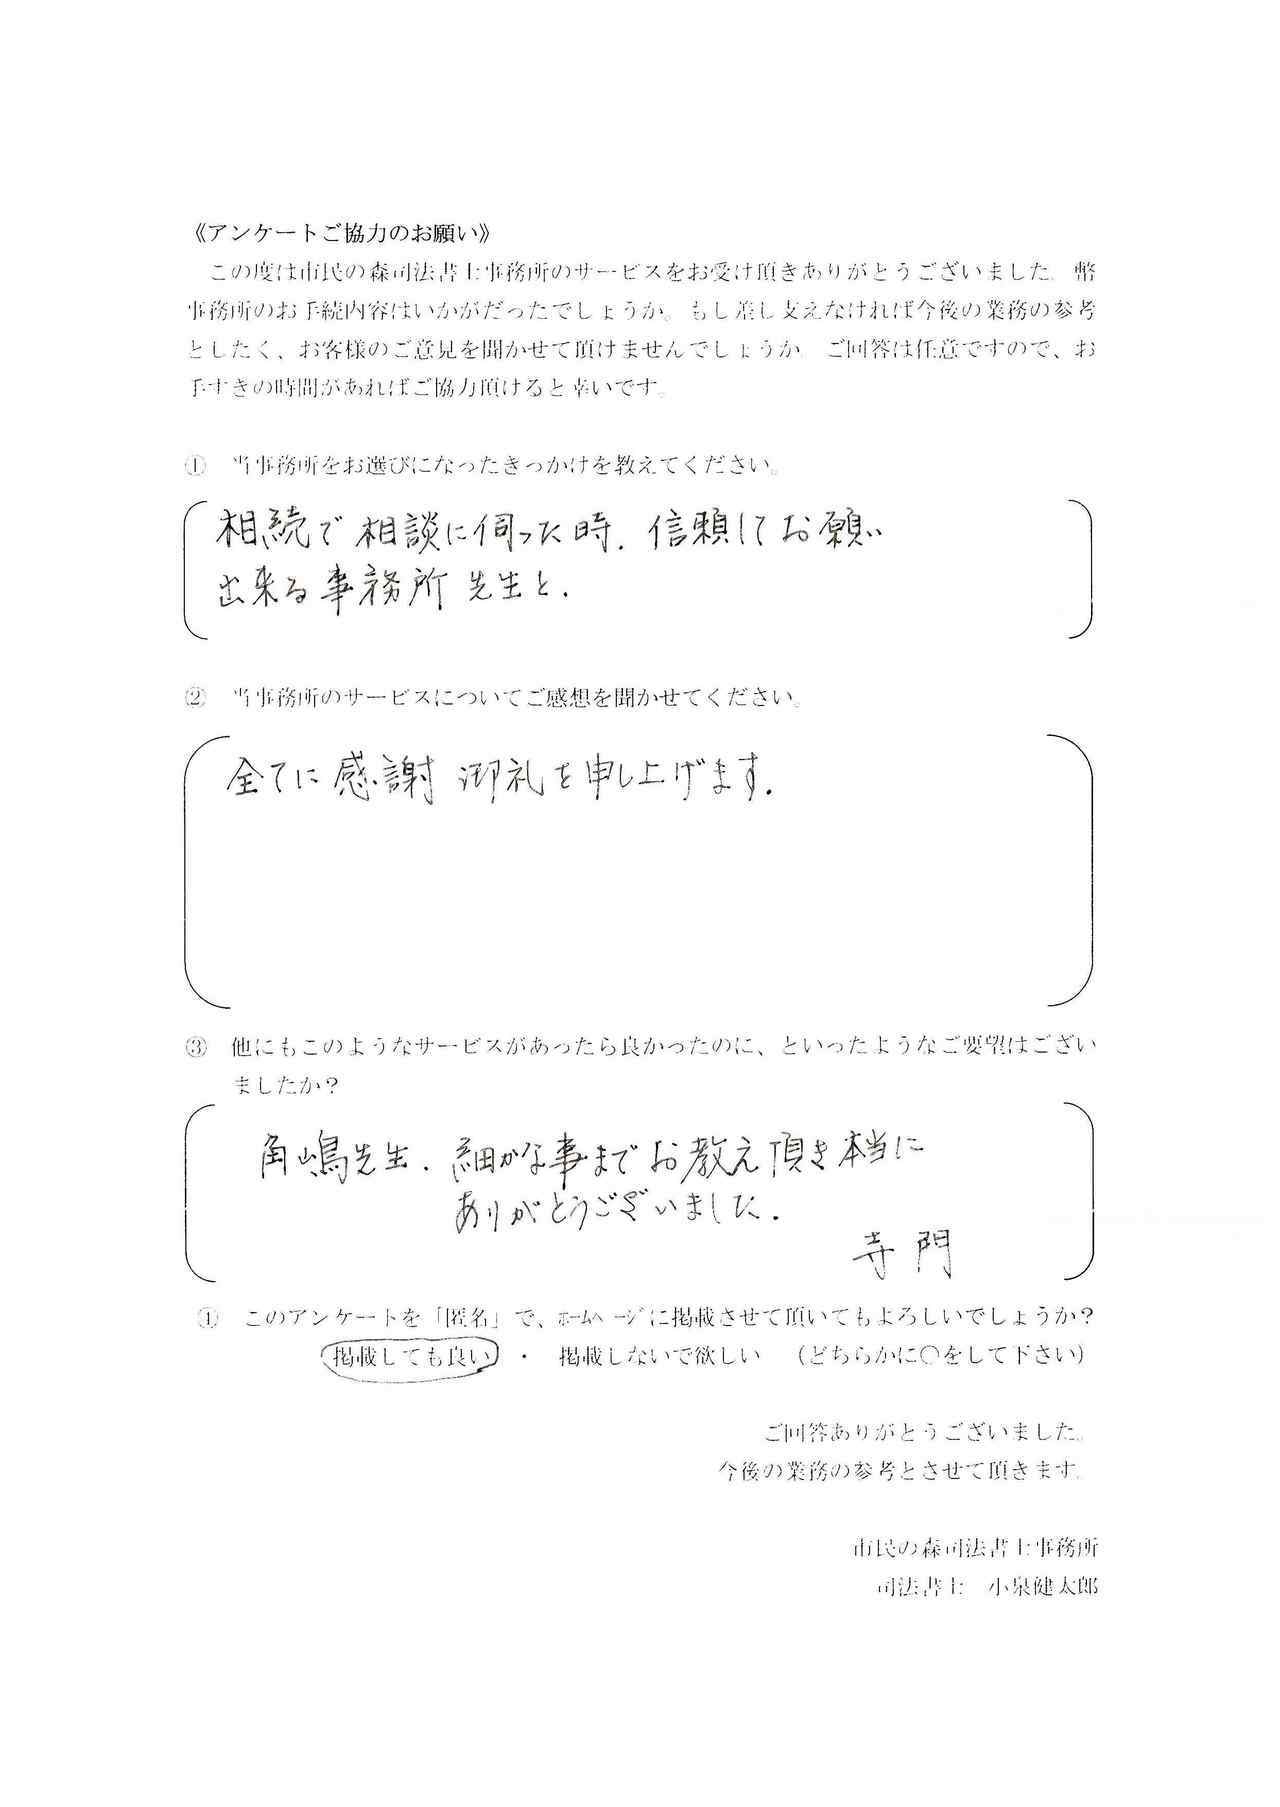 《アンケートご協力のお願い》
この度は市民の森司法書士事務所のサービスをお受け頂きありがとうございました。幣
事務所のお手続内容はいかがだったでしょうか。もし差し支えなければ今後の業務の参考
としたく、お客様のご意見を聞かせて頂けませんでしょうか。ご回答は任意ですので、お
手すきの時間があればご協力頂けると幸いです。
① 当事務所をお選びになったきっかけを教えてください。
相続で相談に伺った時、信頼してお願い
出来る事務所 先生と.
② 当事務所のサービスについてご感想を聞かせてください。
全てに感謝 御礼を申し上げます.
③ 他にもこのようなサービスがあったら良かったのに、といったようなご要望はござい
ましたか？
角嶋先生、細かな事までお教え頂き本当に
ありがとうございました.
寺門
④ このアンケートを「匿名」で、ﾎｰﾑﾍﾟｰｼﾞに掲載させて頂いてもよろしいでしょうか？
掲載しても良い ・ 掲載しないで欲しい （どちらかに〇をして下さい）
ご回答ありがとうございました。
今後の業務の参考とさせて頂きます。
市民の森司法書士事務所
司法書士 小泉健太郎